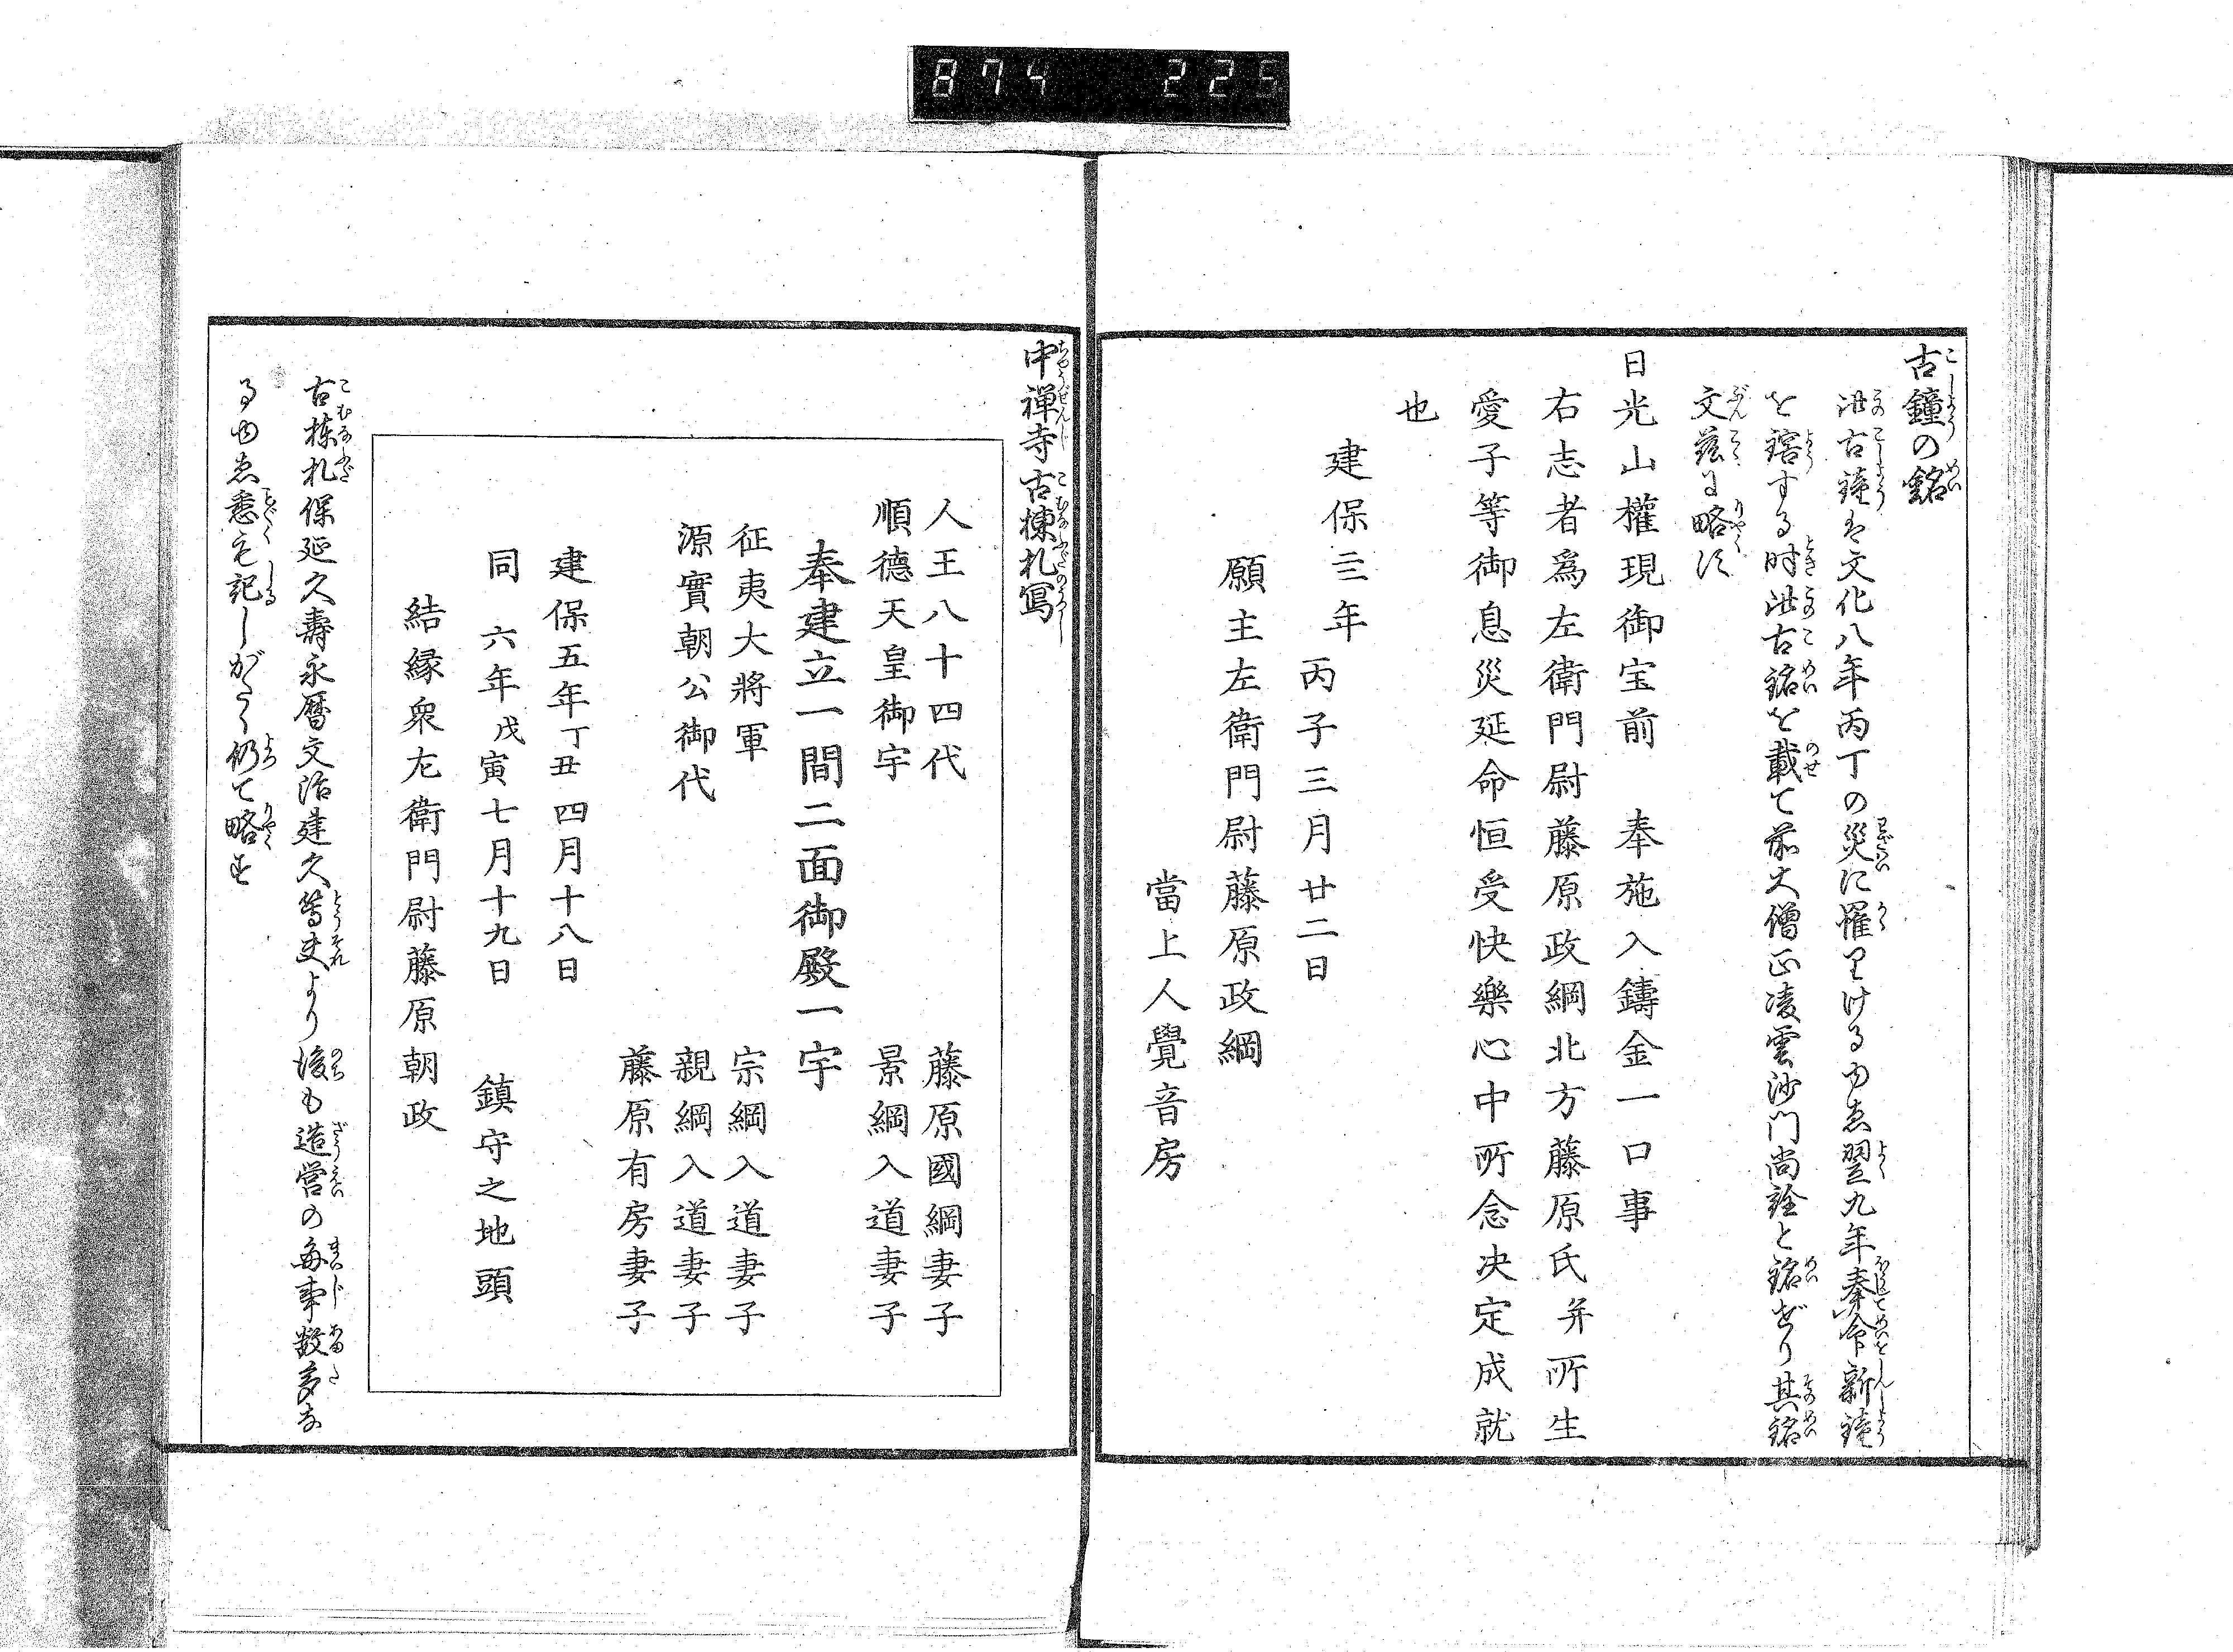 874 225
古鐘の銘
此古鐘は文化八年丙丁の災に罹りけるゆゑ翌九年奉命新鐘
を鎔する時此古銘を載て前大僧正凌雲沙門尚詮と銘ぜり其銘
文茲に略す
日光山權現御宝前 奉施入鑄金一口事
右志者爲左衛門尉藤原政綱北方藤原氏并所生
愛子等御息災延命恒受快樂心中所念决定成就
也
建保三年丙子三月廿二日
願主左衛門尉藤原政綱
當上人覺音房
中禪寺古棟札寫
人王八十四代 藤原國綱妻子
順德天皇御宇 景綱入道妻子
奉建立一間二面御殿一宇
征夷大將軍 宗綱入道妻子
源實朝公御代 親綱入道妻子
藤原有房妻子
建保五年丁丑四月十八日
同 六年戊寅七月十九日 鎮守之地頭
結縁衆左衛門尉藤原朝政
古棟札保延久壽永暦文治建久等夫より後も造営の每事数多な
るゆゑ悉くも記しがたく仍て略す